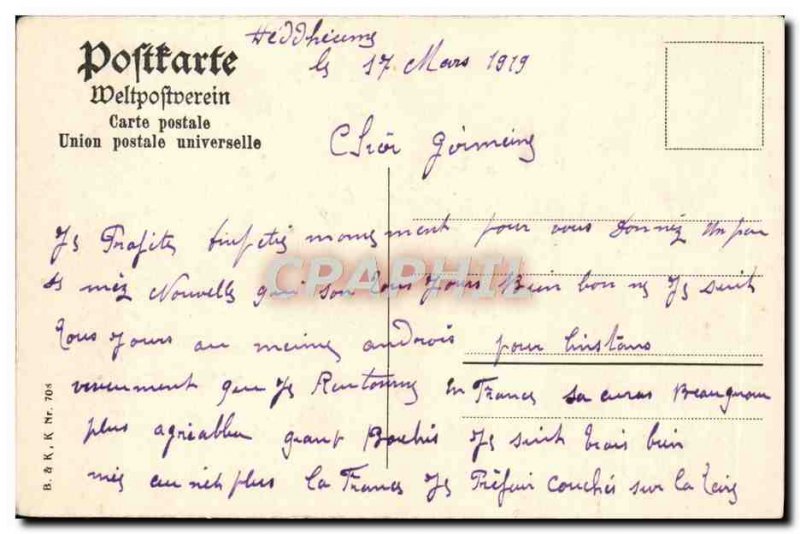 Postkarte
Weltpostverein
Carte postale
Union postale universelle
Heddheims
le 17 Mars 1919
Cher Germains
Je Profites moment pour vous donnez un peu
de mèz Nouvelles qui son tous jours Bien bonnes Je suit
tous jours au meime androis pour linstans
vivement que Je Rentourne en France sa ceras Beaucoup
plus agréable quant Bochis Je suit trais bien
mes cu nèt plus la France Je Préfair couchés sur la
CPAPHIL
B. & K, K Nr. 70s